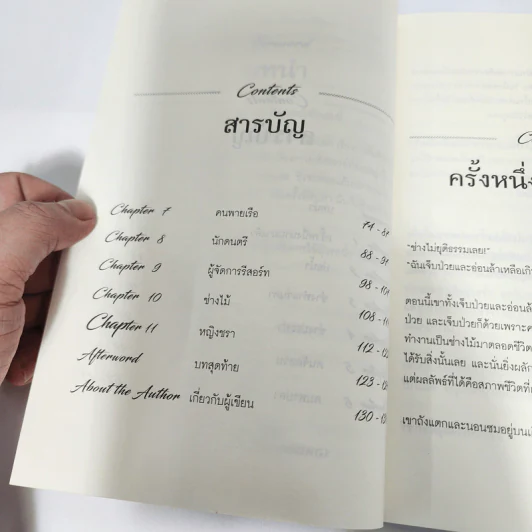 Contents
สารบัญ
Chapter 7 คนพายเรือ
Chapter 8 นักดนตรี 88
Chapter 9 ผู้จัดการรีสอร์ท 98
Chapter 10 ช่างไม้ 108
Chapter 11 หญิงชรา 112
Afterword บทสุดท้าย 123
About the Author เกี่ยวกับผู้เขียน 130
ครั้งหนึ่ง
"ช่างไม่ยุติธรรมเลย!"
"ฉันเจ็บป่วยและอ่อนล้าเหลือเกิ
ตอนนี้เขาทั้งเจ็บป่วยและอ่อนล้
ป่วย และเจ็บป่วยก็ด้วยเพราะค
ทำงานเป็นช่างไม้มาตลอดชีวิต
ได้รับสิ่งนั้นเลย และนั่นยิ่งผลัก
แต่ผลลัพธ์ที่ได้คือสภาพชีวิตที่
เขาถังแตกและนอนซมอยู่บน